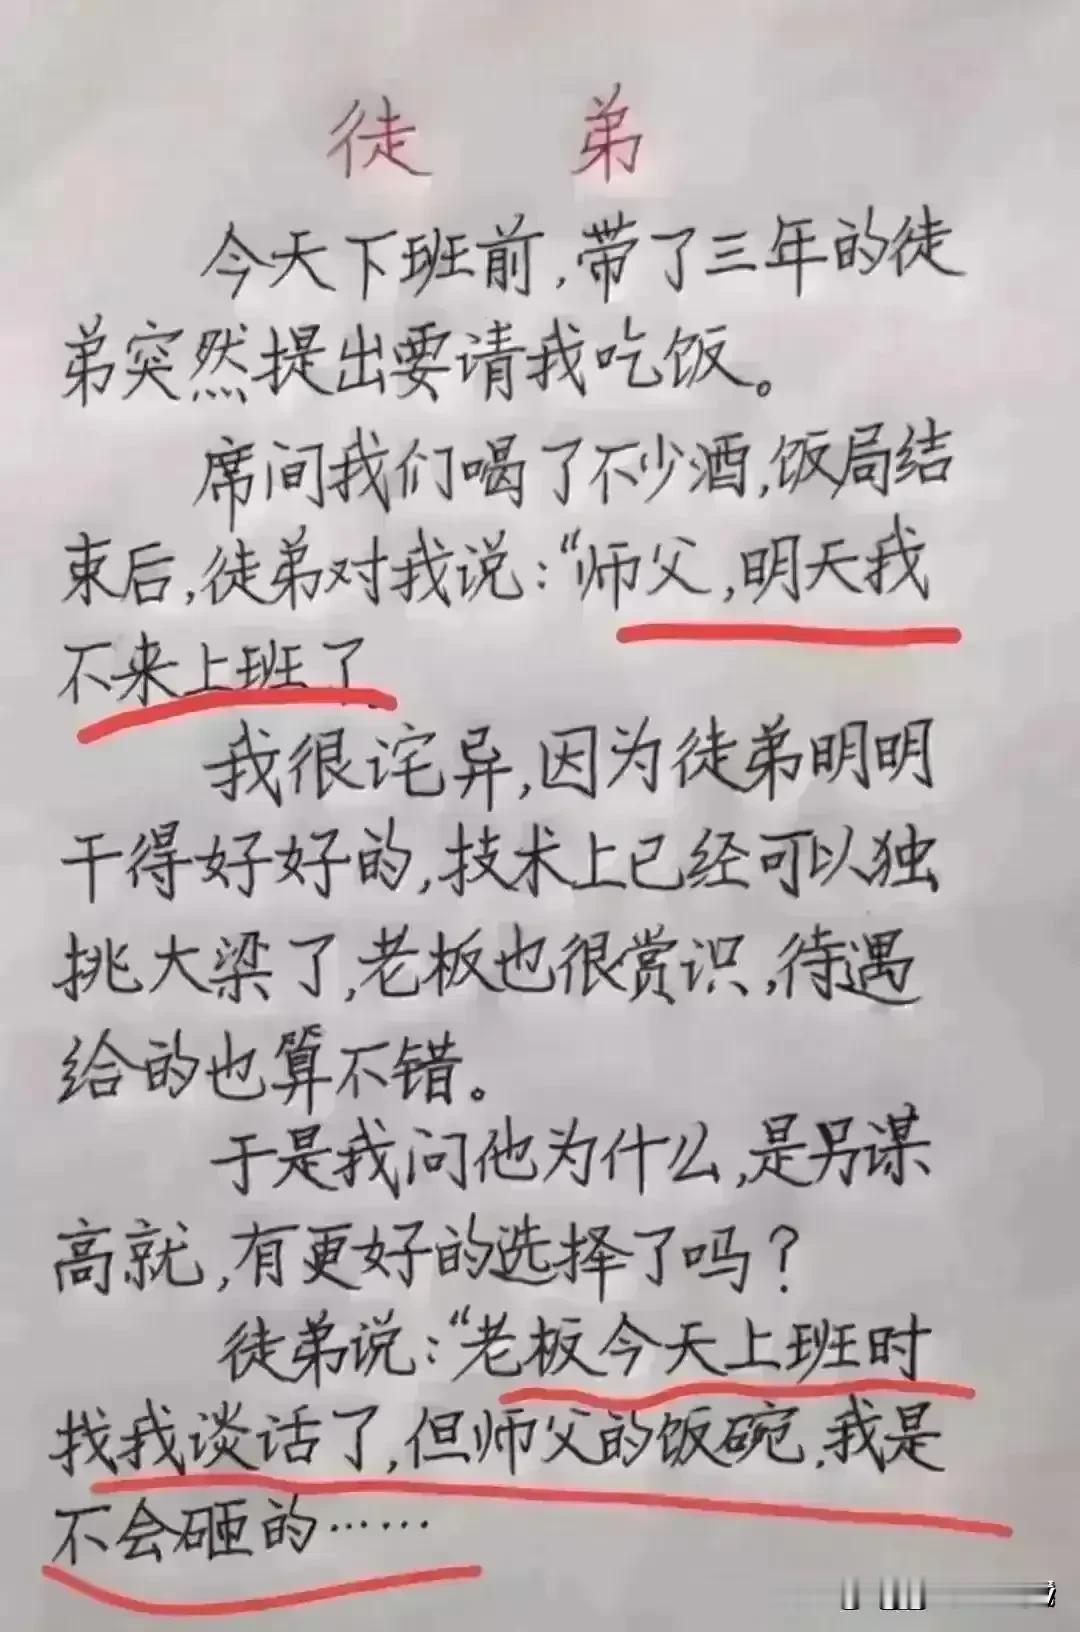 徒弟
今天下班前,带了三年的徒
弟突然提出要请我吃饭。
席间我们喝了不少酒,饭局结
束后,徒弟对我说:“师父,明天我
不来上班了
我很诧异,因为徒弟明明
干得好好的,技术上已经可以独
挑大梁了,老板也很赏识,待遇
给的也算不错。
于是我问他为什么,是另谋
高就,有更好的选择了吗?
徒弟说:“老板今天上班时
找我谈话了,但师父的饭碗,我是
不会砸的……